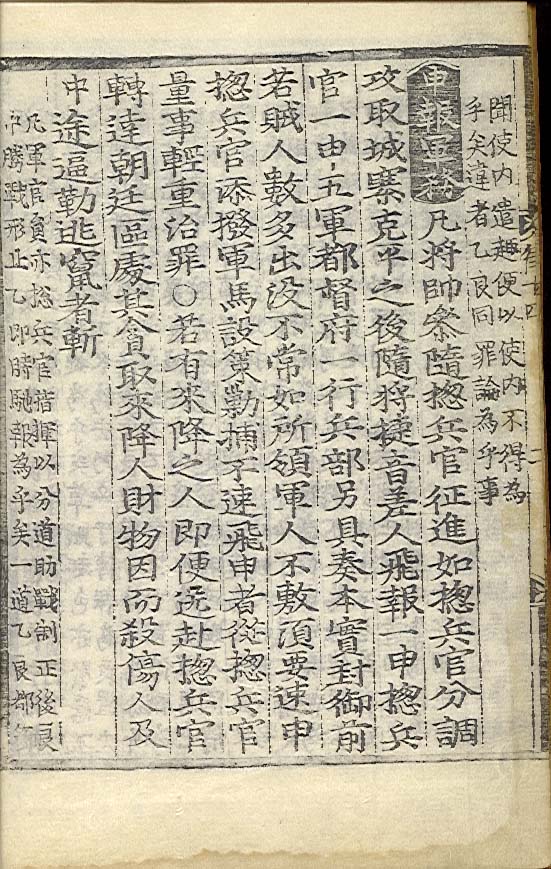 聞使內遣趣便以使內不得為
乎矣違者乙良同罪論為乎事
申報軍務 凡將帥參隨摠兵官征進如摠兵官分調
攻取城寨克平之後隨將捷音差人飛報一申摠兵
官一申五軍都督府一行兵部另具奏本實封御前
若賊人數多出沒不常如所領軍人不敷須要速申
摠兵官添撥軍馬設策勦捕不速飛申者從摠兵官
量事輕重治罪○若有來降之人即便送赴摠兵官
轉達朝廷區處其貪取來降人財物因而殺傷人及
中途逼勒逃竄者斬
凡軍官員亦摠兵官指揮以分道助戰制正後良
中勝戰形止乙即時馳報為乎矣一道乙良都